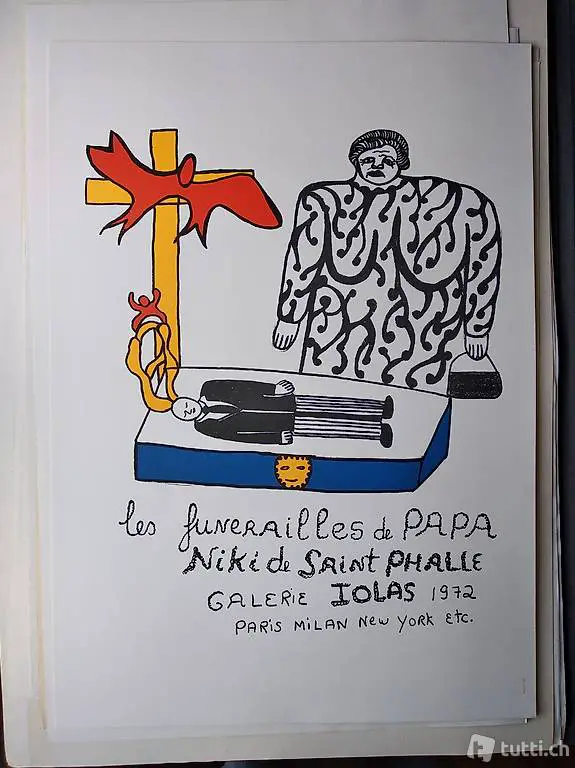 les funerailles de PAPA
Niki de SAinT PHALLE
GALERiE IOLAS 1972
PARiS MiLAN New YORK Etc.
tutti.ch